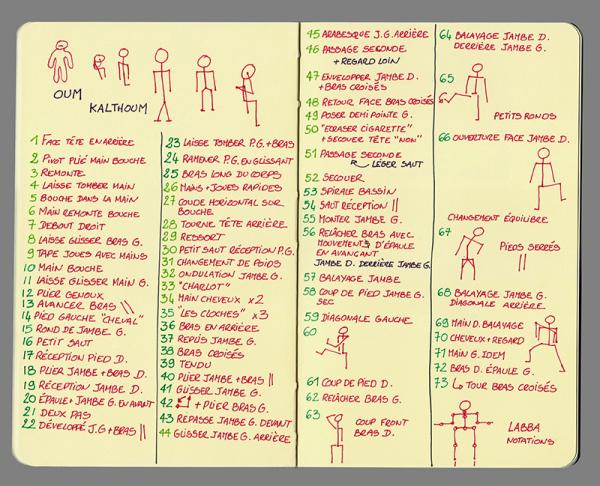 OUM
KALTHOUM
1 FACE TÊTE EN ARRIÈRE
2 PIVOT PLIÉ MAIN BOUCHE
3 REMONTE
4 LAISSE TOMBER MAIN
5 BOUCHE DANS LA MAIN
6 MAIN REMONTE BOUCHE
7 DEBOUT DROIT
8 LAISSE GLISSER BRAS G.
9 TAPE JOUES AVEC MAINS
10 MAIN BOUCHE
11 LAISSE GLISSER MAIN G.
12 PLIER GENOUX
13 AVANCER BRAS \\
14 PIED GAUCHE "CHEVAL"
15 ROND DE JAMBE G.
16 PETIT SAUT
17 RÉCEPTION PIED D.
18 PLIER JAMBE + BRAS D.
19 RÉCEPTION JAMBE D.
20 ÉPAULE + JAMBE G. EN AVANT
21 DEUX PAS
22 DÉVELOPPÉ J.G + BRAS ||
23 LAISSE TOMBER P.G. + BRAS
24 RAMENER P.G. EN GLISSANT
25 BRAS LONG DU CORPS
26 MAINS + JOUES RAPIDES
27 COUDE HORIZONTAL SUR
BOUCHE
28 TOURNE TÊTE ARRIÈRE
29 RESSORT
30 PETIT SAUT RÉCEPTION P.G.
31 CHANGEMENT DE POIDS
32 ONDULATION JAMBE G.
33 "CHARLOT"
34 MAIN CHEVEUX x2
35 "LES CLOCHES" x3
36 BRAS EN ARRIÈRE
37 REPLIS JAMBE G.
38 BRAS CROISÉS
39 TENDU
40 PLIER JAMBE + BRAS ||
41 GLISSER JAMBE G.
42 + PLIER BRAS G.
43 REPASSE JAMBE G. DEVANT
44 GLISSER JAMBE G. ARRIÈRE
45 ARABESQUE J.G. ARRIÈRE
46 PASSAGE SECONDE
+ REGARD LOIN
47 ENVELOPPER JAMBE D.
+ BRAS CROISÉS
48 RETOUR FACE BRAS CROISÉS
49 POSER DEMI POINTE G.
50 "ECRASER CIGARETTE"
+ SECOUER TÊTE "NON"
51 PASSAGE SECONDE
LÉGER SAUT
52 SECOUER
53 SPIRALE BASSIN
54 SAUT RÉCEPTION ||
55 MONTER JAMBE G.
56 RELÂCHER BRAS AVEC
MOUVEMENTS D'ÉPAULE
EN AVANÇANT
JAMBE D. DERRIÈRE JAMBE G.
57 BALAYAGE JAMBE
58 COUP DE PIED JAMBE G.
SEC
59 DIAGONALE GAUCHE
60
61 COUP DE PIED D.
62 RELÂCHER BRAS G.
63
COUP FRONT
BRAS D.
64 BALAYAGE JAMBE D.
DERRIÈRE JAMBE G.
65
PETITS RONDS
66 OUVERTURE FACE JAMBE D.
CHANGEMENT ÉQUILIBRE
67
PIEDS SERRÉS
||
68 BALAYAGE JAMBE G.
DIAGONALE ARRIÈRE
69 MAIN D. BALAYAGE
70 CHEVEUX + REGARD
71 MAIN G. IDEM
72 BRAS D. ÉPAULE G.
73 ↳ TOUR BRAS CROISÉS
LABBA
NOTATIONS